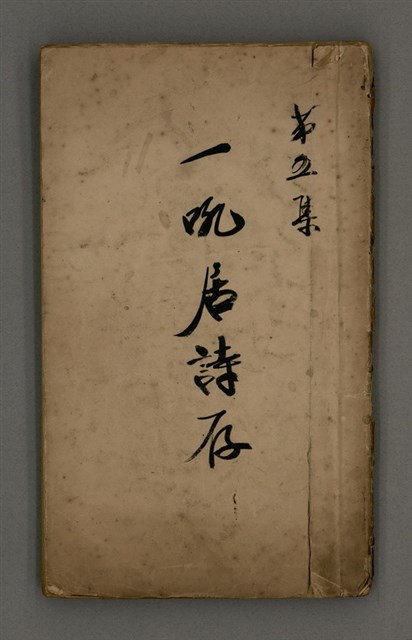 第五集
一吼居詩存